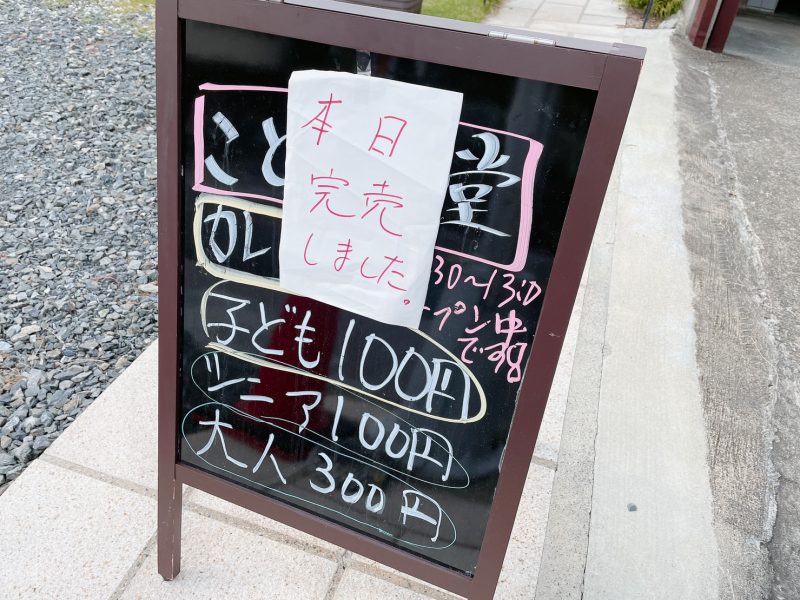 本日
完売
しました。
こど 堂
カレ
30～13:0
プン中
です
子ども100円
シニア100円
大人300円